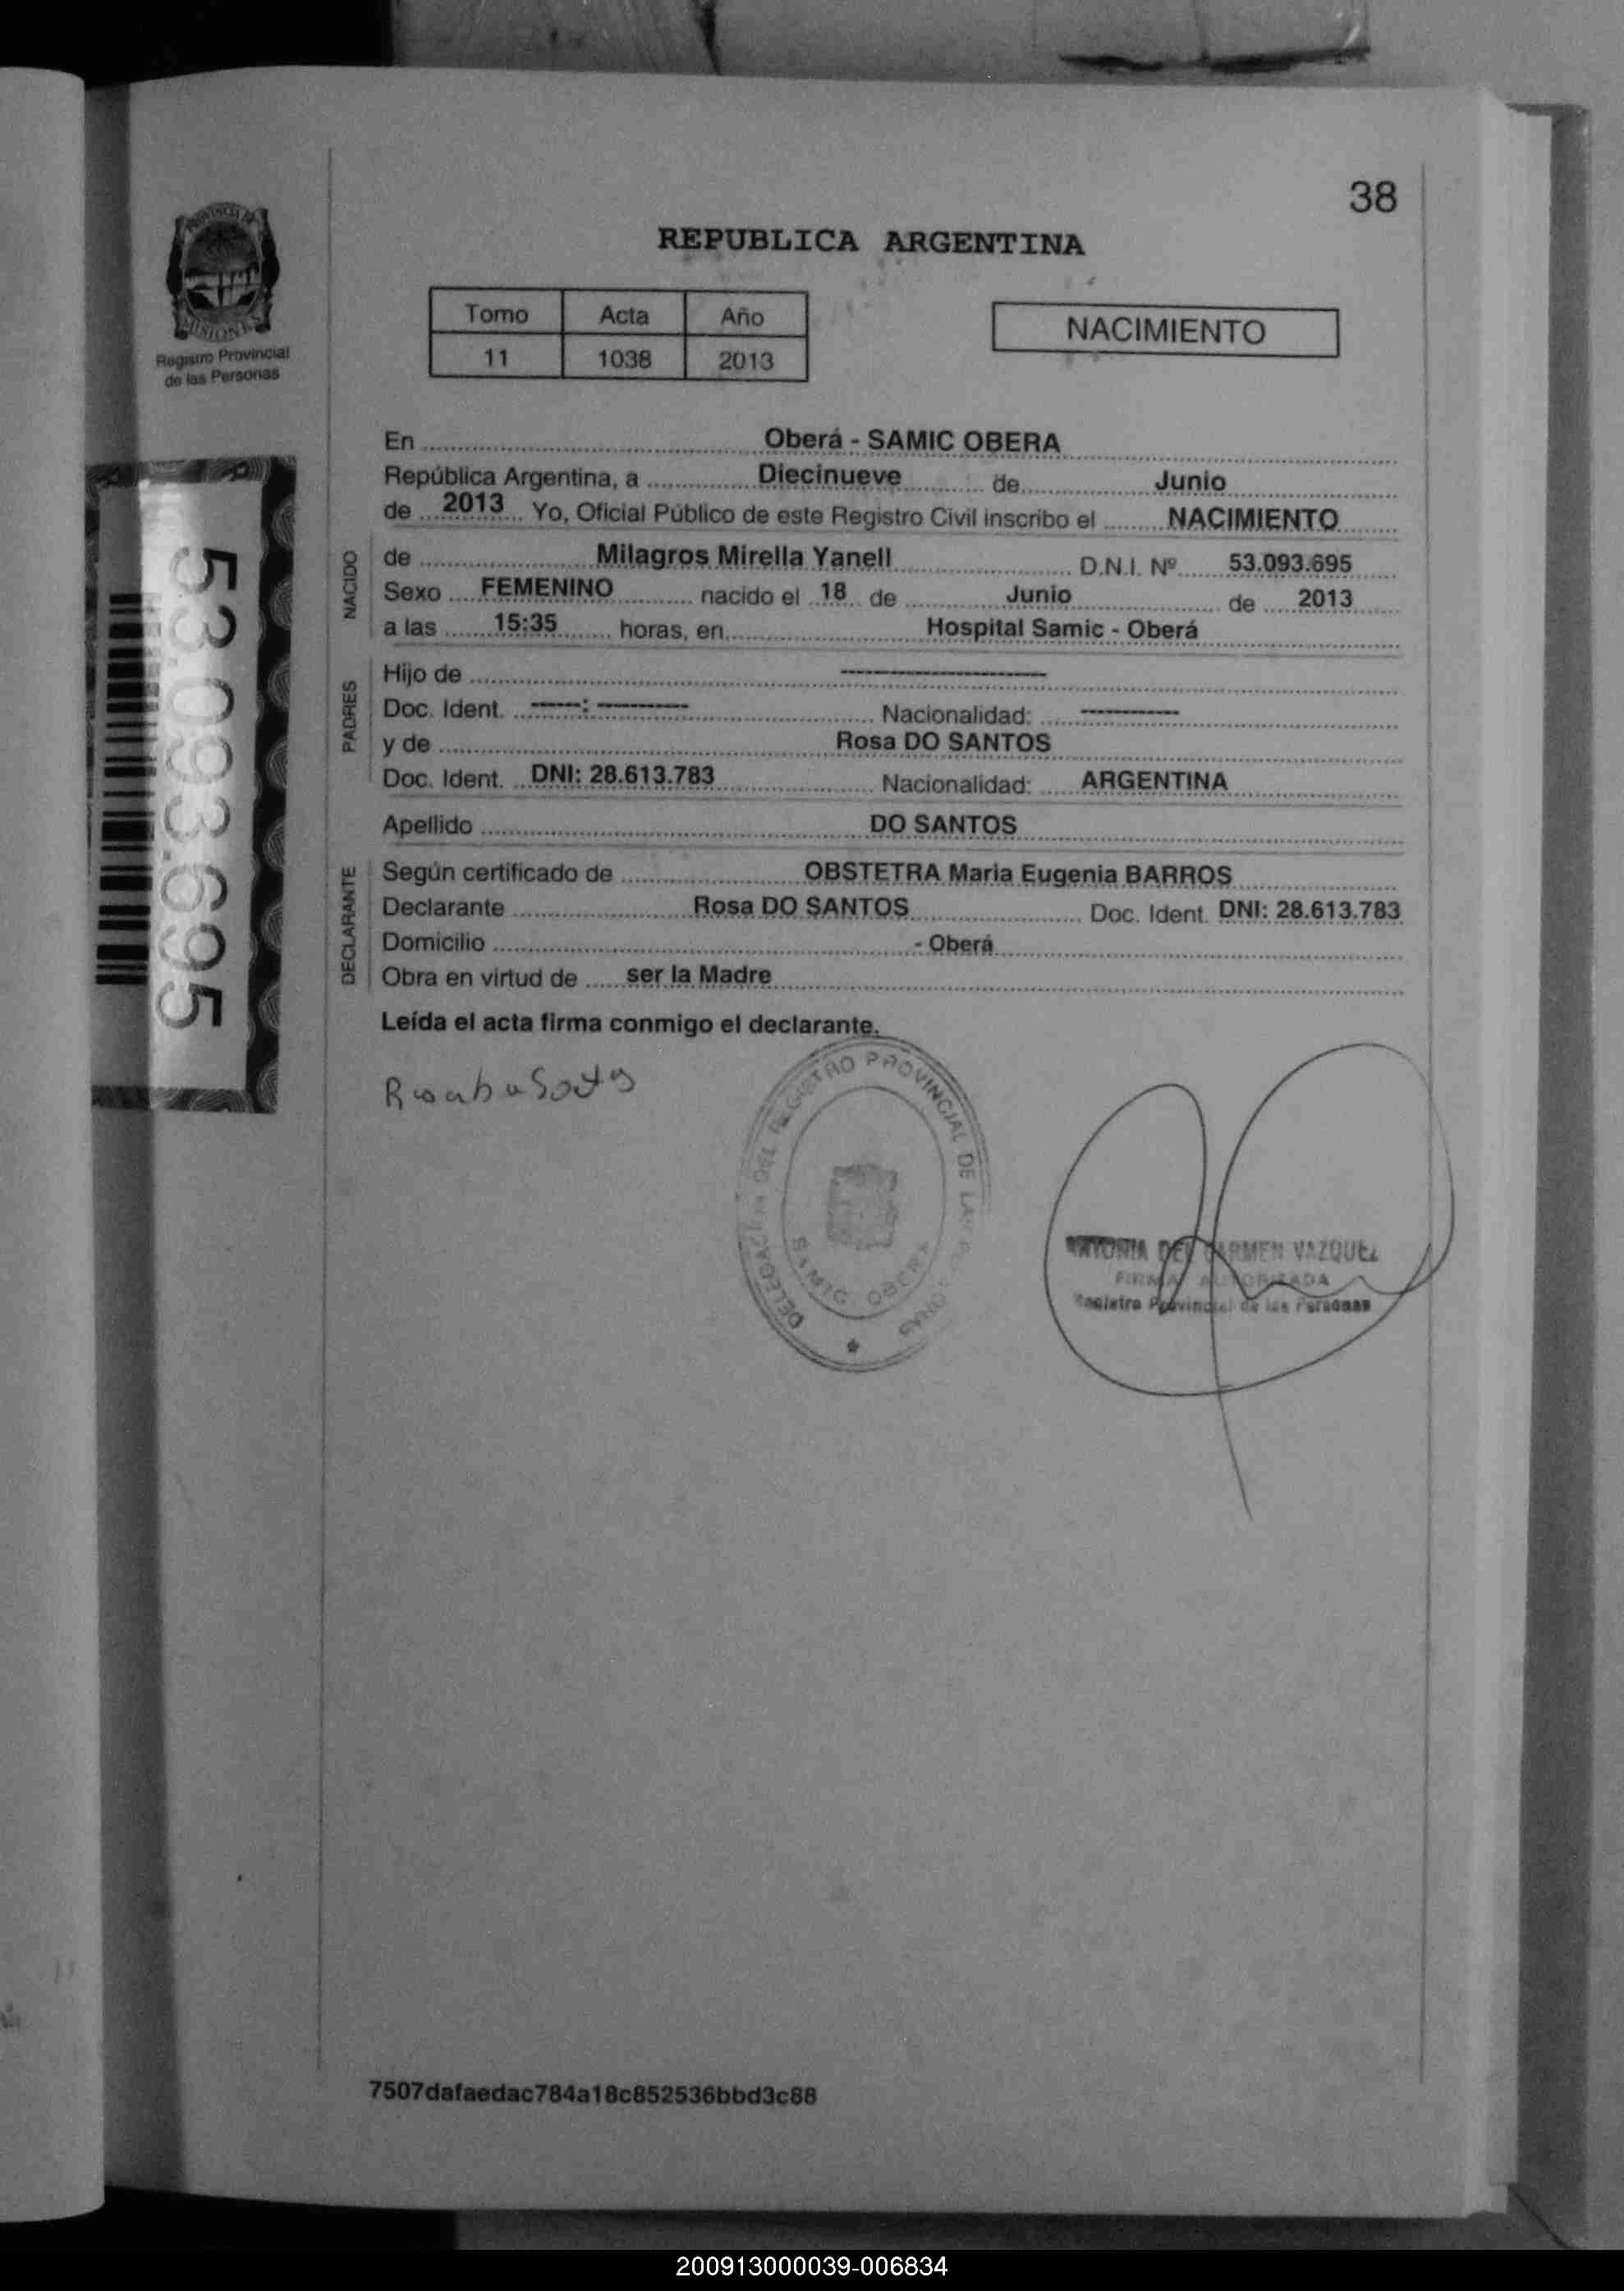 38
REPUBLICA ARGENTINA
PROVINCIA DE
MISIONES
Registro Provincial
de las Personas
Tomo Acta Año
11 1038 2013
NACIMIENTO
En Oberá - SAMIC OBERA
República Argentina, a Diecinueve de Junio
de 2013 Yo, Oficial Público de este Registro Civil inscribo el NACIMIENTO
NACIDO
de Milagros Mirella Yanell D.N.I. Nº 53.093.695
Sexo FEMENINO nacido el 18 de Junio de 2013
a las 15:35 horas, en Hospital Samic - Oberá
PADRES
Hijo de ----------
Doc. Ident. -----: --------- Nacionalidad: ----------
y de Rosa DO SANTOS
Doc. Ident. DNI: 28.613.783 Nacionalidad: ARGENTINA
Apellido DO SANTOS
DECLARANTE
Según certificado de OBSTETRA Maria Eugenia BARROS
Declarante Rosa DO SANTOS Doc. Ident. DNI: 28.613.783
Domicilio - Oberá
Obra en virtud de ser la Madre
Leída el acta firma conmigo el declarante.
53.093.695
DELEGACION DEL REGISTRO PROVINCIAL DE LAS PERSONAS
SAMIC OBERA
ANTONIA DEL CARMEN VAZQUEZ
FIRMA AUTORIZADA
Registro Provincial de las Personas
7507dafaedac784a18c852536bbd3c88
200913000039-006834